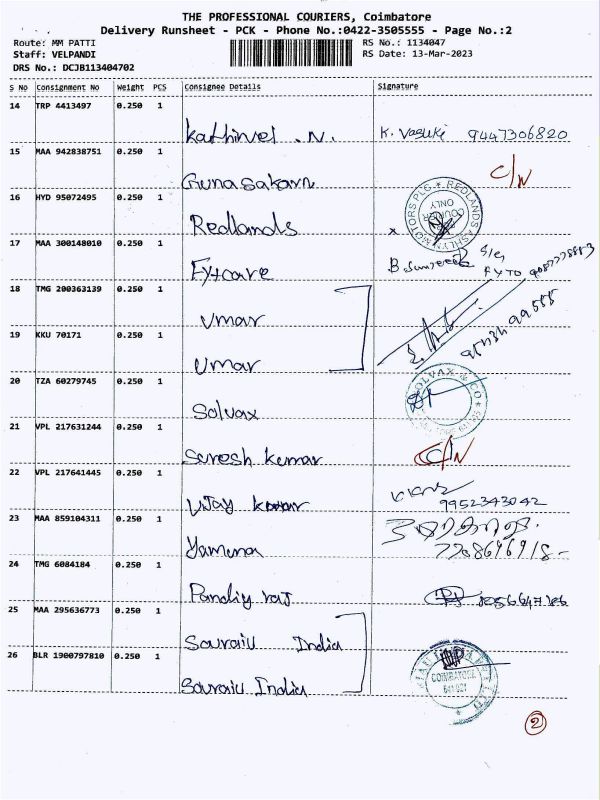 THE PROFESSIONAL COURIERS, Coimbatore
Delivery Runsheet - PCK - Phone No.:0422-3505555 - Page No.:2
Route: MM PATTI RS No.: 1134047
Staff: VELPANDI RS Date: 13-Mar-2023
DRS No.: DCJB113404702
S No Consignment No Weight PCS Consignee Details Signature
14 TRP 4413497 0.250 1
Kathirvel .N. K. Vasuki 9447306820
15 MAA 942838751 0.250 1
Gunasakarn C/N
16 HYD 95072495 0.250 1
Redlands x REDLANDS ASHLYN MOTORS PLC COURIER ONLY
17 MAA 300148010 0.250 1
Fytcare
18 TMG 200363139 0.250 1
Umar
19 KKU 70171 0.250 1
Umar
20 TZA 60279745 0.250 1
Solvax SOLVAX & CO
21 VPL 217631244 0.250 1
Suresh kumar C/N
22 VPL 217641445 0.250 1
Vijay kumar 9952343042
23 MAA 859104311 0.250 1
Yamuna
24 TMG 6084184 0.250 1
Pandiy raj
25 MAA 295636773 0.250 1
Souraiu India
26 BLR 1900797810 0.250 1
Souraiu India COIMBATORE 641 021
2